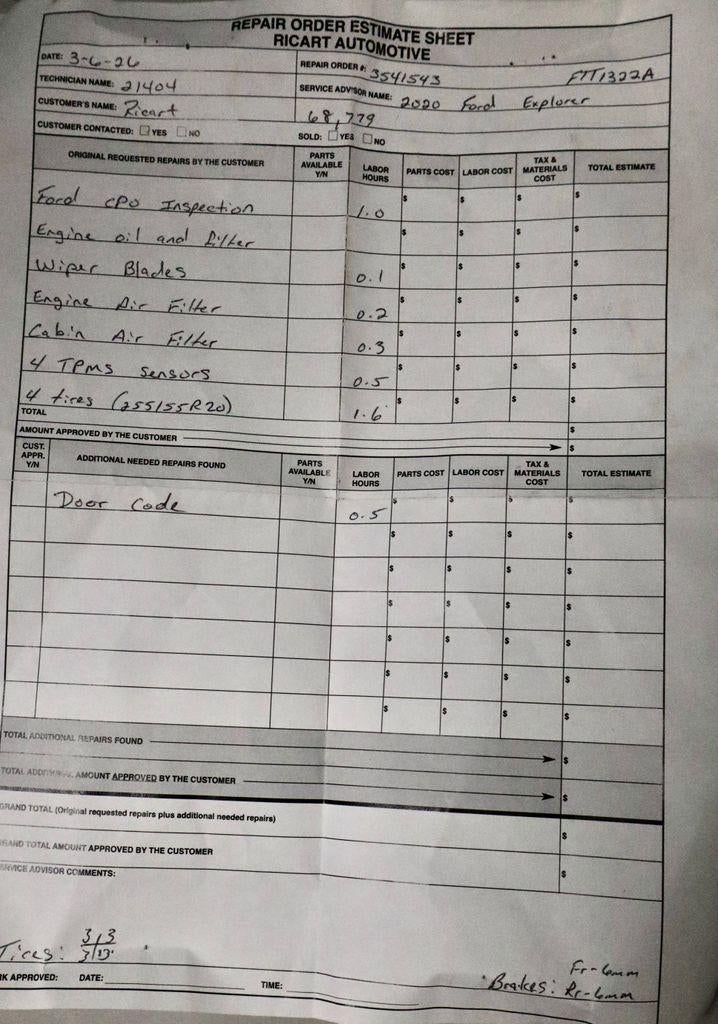 REPAIR ORDER ESTIMATE SHEET
RICART AUTOMOTIVE
DATE: 3-6-26
REPAIR ORDER #: 3541543 FTT1322A
TECHNICIAN NAME: 21404
SERVICE ADVISOR NAME: 2020 Ford Explorer
CUSTOMER'S NAME: Ricart
68,779
CUSTOMER CONTACTED: YES NO
SOLD: YES NO
ORIGINAL REQUESTED REPAIRS BY THE CUSTOMER PARTS AVAILABLE Y/N LABOR HOURS PARTS COST LABOR COST TAX & MATERIALS COST TOTAL ESTIMATE
Ford CPO Inspection 1.0 $ $ $ $
Engine oil and filter $ $ $ $
Wiper Blades 0.1 $ $ $ $
Engine Air Filter 0.2 $ $ $ $
Cabin Air Filter 0.3 $ $ $ $
4 TPMS sensors 0.5 $ $ $ $
4 tires (255/55R20) 1.6 $ $ $ $
TOTAL $
AMOUNT APPROVED BY THE CUSTOMER $
CUST. APPR. Y/N ADDITIONAL NEEDED REPAIRS FOUND PARTS AVAILABLE Y/N LABOR HOURS PARTS COST LABOR COST TAX & MATERIALS COST TOTAL ESTIMATE
Door Code 0.5 $ $ $ $
$ $ $ $
$ $ $ $
$ $ $ $
$ $ $ $
$ $ $ $
$ $ $ $
TOTAL ADDITIONAL REPAIRS FOUND $
TOTAL ADDITIONAL AMOUNT APPROVED BY THE CUSTOMER $
GRAND TOTAL (Original requested repairs plus additional needed repairs) $
GRAND TOTAL AMOUNT APPROVED BY THE CUSTOMER $
SERVICE ADVISOR COMMENTS:
Tires: 3/3
3/3
Brakes: Fr-6mm
Rr-6mm
RK APPROVED: DATE: TIME: